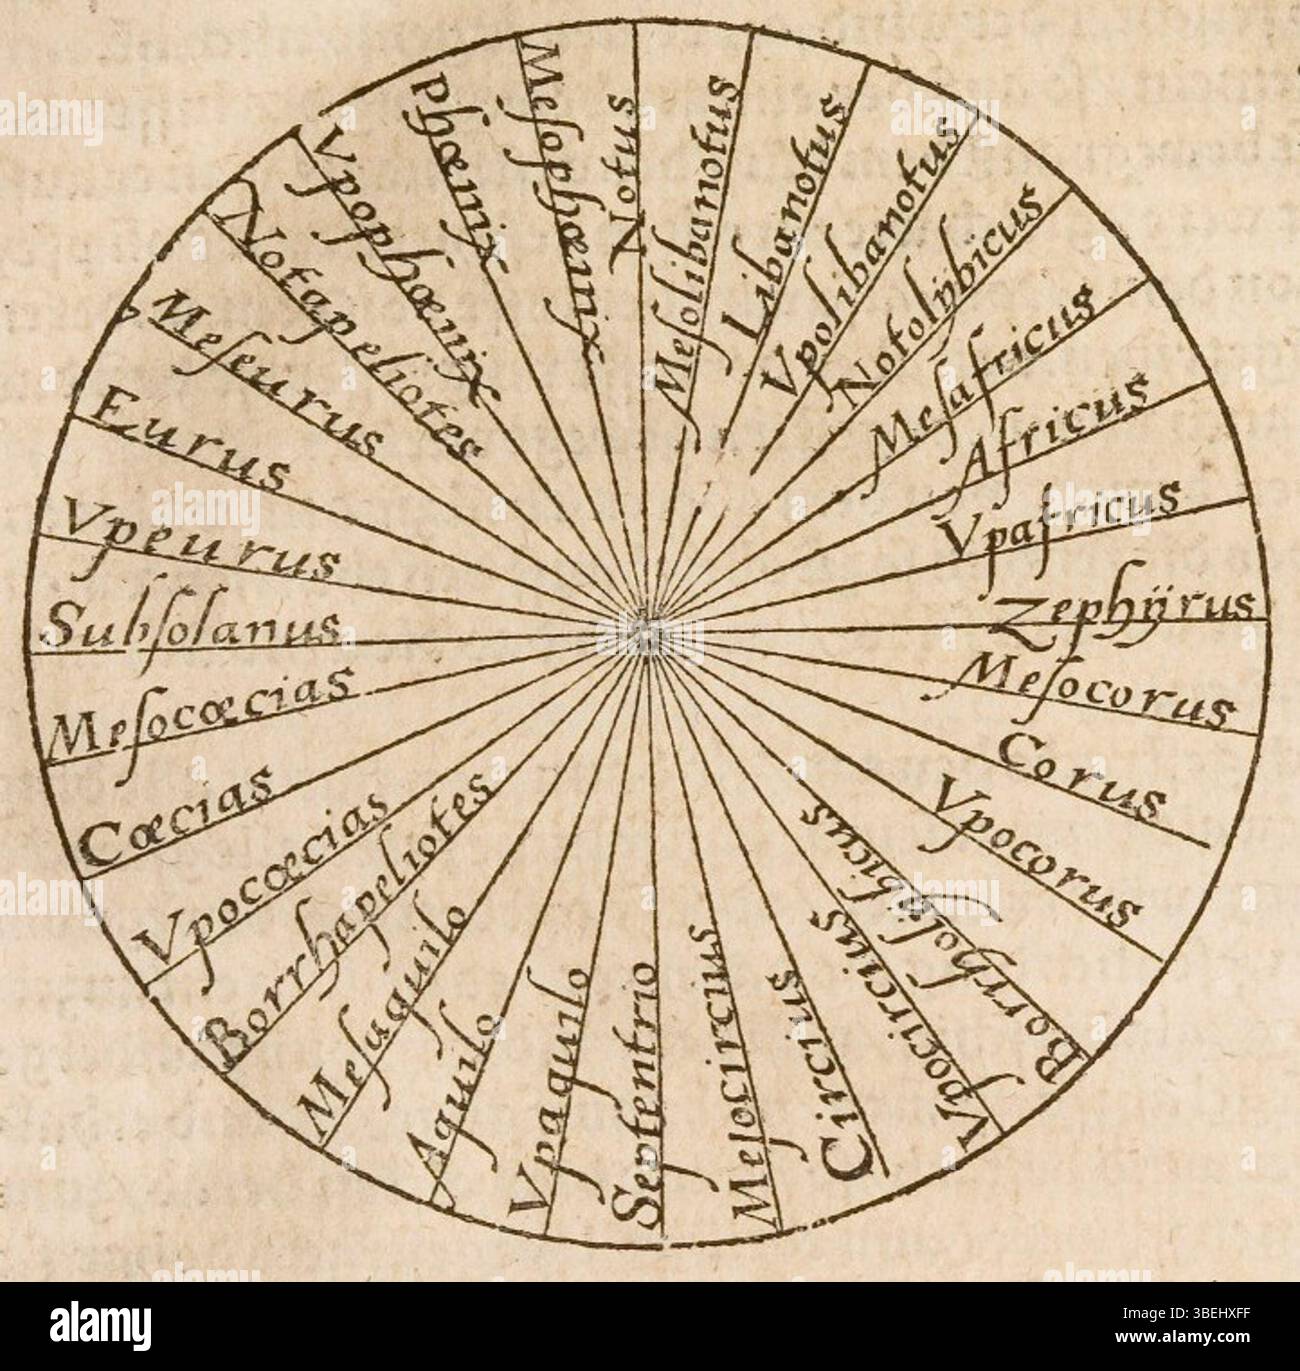 Notus
Meſolibanotus
Libanotus
Vpolibanotus
Notolÿbicus
Meſafricus
Africus
Vpafricus
Zephÿrus
Meſocorus
Corus
Vpocorus
Borrholÿbicus
Vpocircius
Circius
Meſocircius
Septentrio
Vpaquilo
Aquilo
Meſaquilo
Borrhapeliotes
Vpocœcias
Cœcias
Meſocœcias
Subſolanus
Vpeurus
Eurus
Meſeurus
Notapeliotes
Vpophœnix
Phœnix
Meſophœnix
alamy
Image ID: 3BEHXFF
www.alamy.com